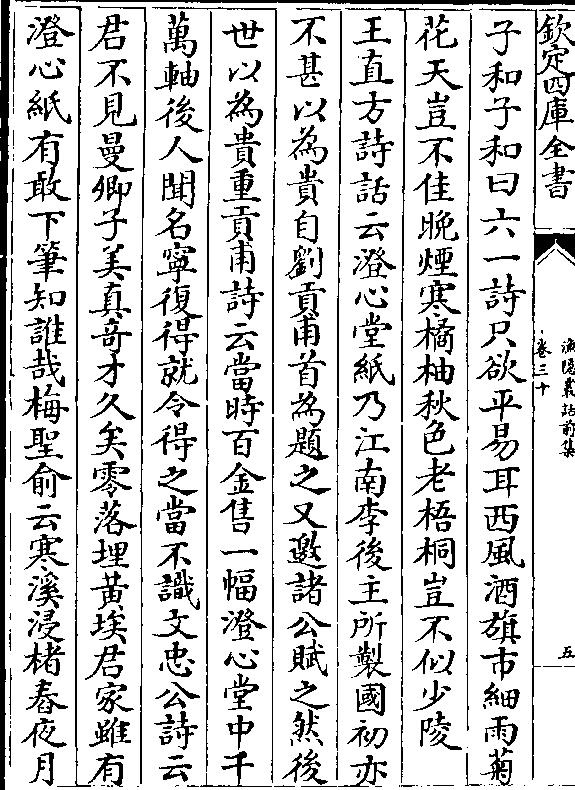 欽定四庫全書
漁隠叢話前集
卷三十
五
子和子和曰六一詩只欲平易耳西風酒旗市細雨菊
花天豈不佳晚煙寒橘柚秋色老梧桐豈不似少陵
王直方詩話云澄心堂紙乃江南李後主所製國初亦
不甚以為貴自劉貢甫首為題之又邀諸公賦之然後
世以為貴重貢甫詩云當時百金售一幅澄心堂中千
萬軸後人聞名寧復得就令得之當不識文忠公詩云
君不見曼卿子美真奇才久矣零落埋黃埃君家雖有
澄心紙有敢下筆知誰哉梅聖俞云寒溪浸楮舂夜月